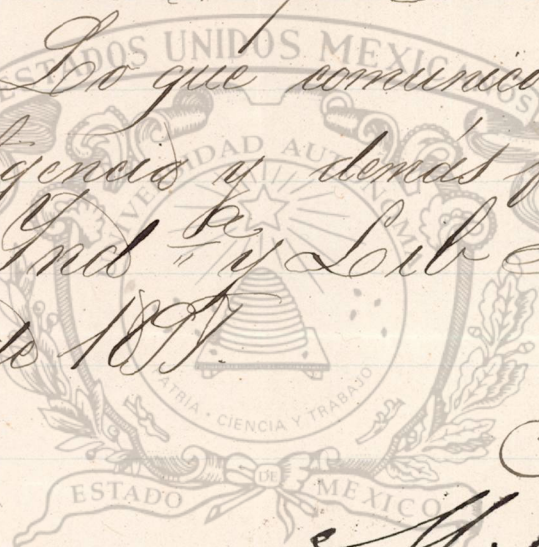 ESTADOS UNIDOS MEXICANOS
Lo que comunico
igencia y demás
UNIVERSIDAD AUTONOMA
Ind.a y Lib
de 189
PATRIA • CIENCIA Y TRABAJO
ESTADO DE MEXICO